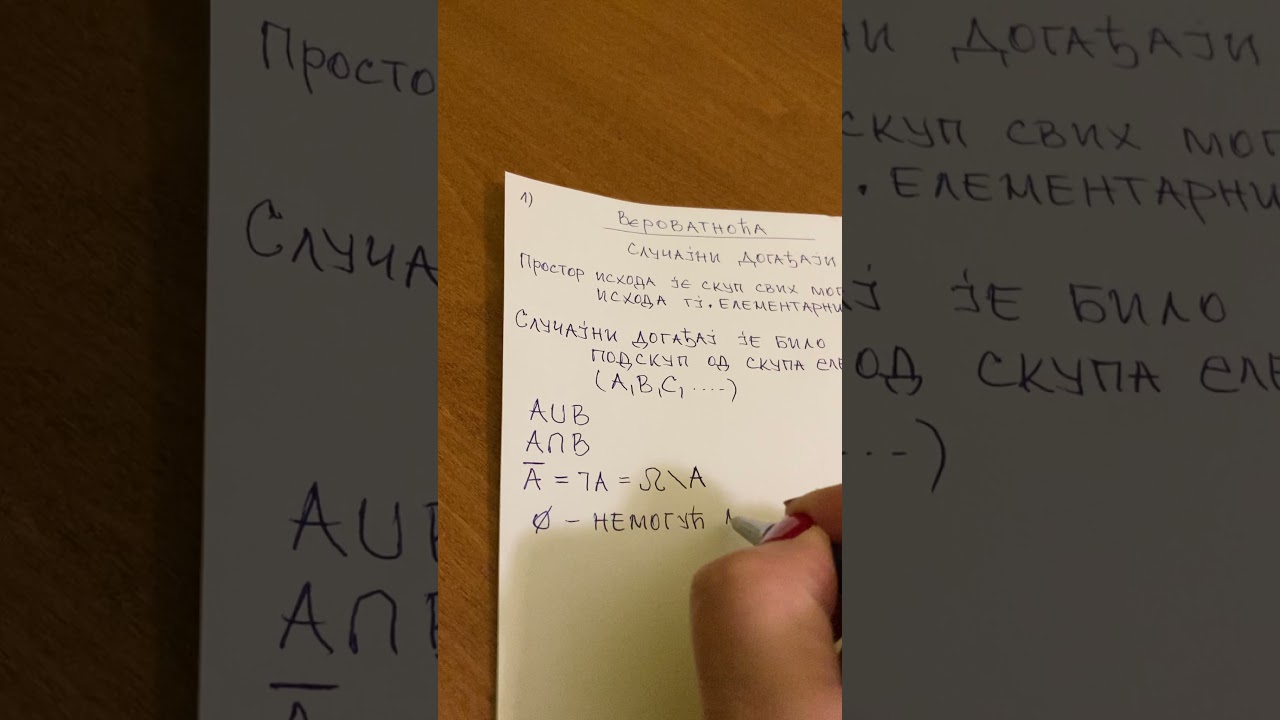 1)
ВЕРОВАТНОЋА
СЛУЧАЈНИ ДОГАЂАЈИ
ПРОСТОР ИСХОДА ЈЕ СКУП СВИХ МОГ
ИСХОДА ТЈ. ЕЛЕМЕНТАРНИ
СЛУЧАЈНИ ДОГАЂАЈ ЈЕ БИЛО
ПОДСКУП ОД СКУПА ЕЛЕ
(A, B, C, ....)
A∪B
A∩B
A̅ = ¬A = Ω \ A
∅ – НЕМОГУЋ